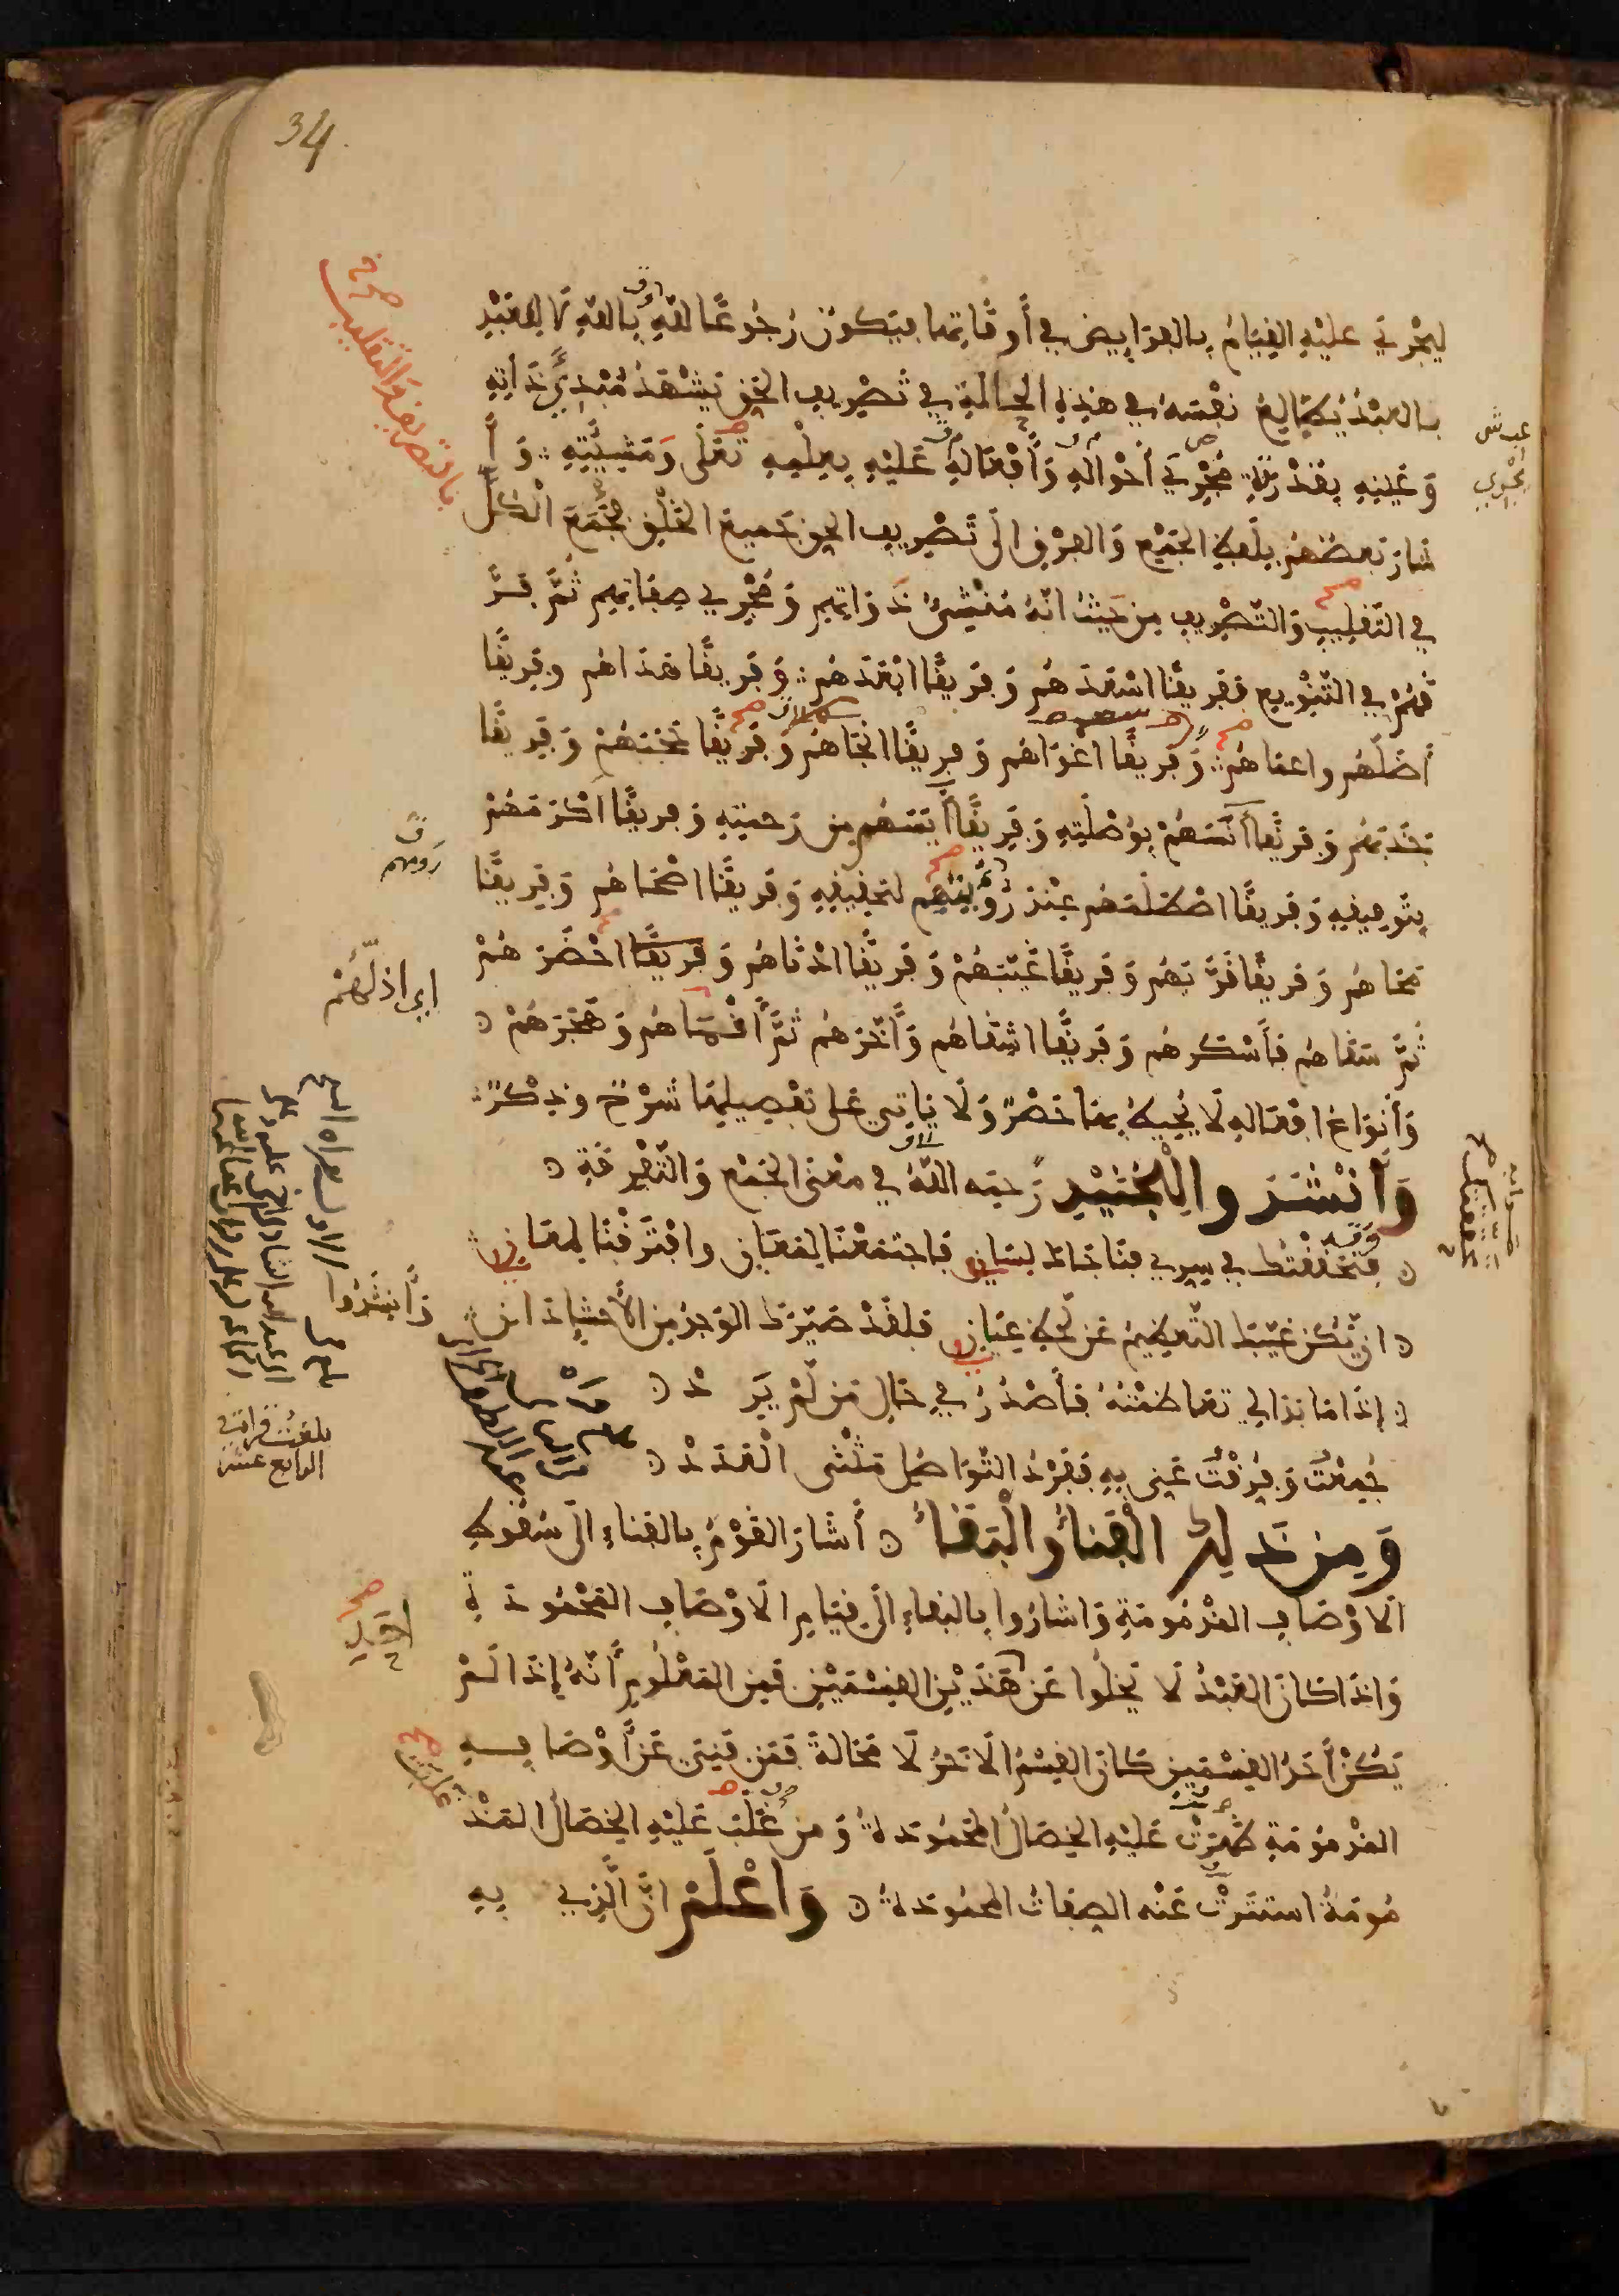 34
ليجري عليه القيام بالفرايض في أوقاتها فيكون رجوعا لله بالله لا للعبد
بالعبد يطالع نفسه في هذه الحالة في تصريف الحق يشهد مبدئ ذاته
وعينه بقدرته مجري أحواله وأفعاله عليه بعلمه تعلى ومشيئته وأ
شار بعضهم بلفظ الجمع والفرق الى تصريف الحق جميع الخلق فجمع الكل
في التقليب والتصريف من حيث انه منشئ ذواتهم ومجري صفاتهم ثم فر
قهم في التنويع ففريقا اسعدهم وفريقا ابعدهم وفريقا هداهم وفريقا
أضلهم واعماهم وفريقا اغواهم وفريقا انجاهم وفريقا حجبهم وفريقا
جذبهم وفريقا آنسهم بوصلته وفريقا آيسهم من رحمته وفريقا اكرمهم
بتوفيقه وفريقا اصطلمهم عند رؤيتهم لتحقيقه وفريقا اصحاهم وفريقا
محاهم وفريقا قربهم وفريقا غيبهم وفريقا ادناهم وفريقا احضرهم
ثم سقاهم فأسكرهم وفريقا اشقاهم وأخرهم ثم أقصاهم وهجرهم
وأنواع افعاله لا يحيط بها حصر ولا ياتي على تفصيلها شرح وذكر
وأنشدوا للجنيد رحمه الله في معنى الجمع والتفرقة
فتحققتك في سري فناجاك لساني فاجتمعنا لمعان وافترقنا لمعاني
ان يكن غيبك التعظيم عن لحظ عياني فلقد صيرك الوجد من الأحشاء داني
إذا ما بدا لي تعاظمته فأصدر في حال من لم يرد
جمعت وفرقت عني به ففرد التواصل مثنى العدد
ومن ذلك الفناء والبقاء أشار القوم بالفناء الى سقوط
الاوصاف المذمومة واشاروا بالبقاء الى قيام الاوصاف المحمودة
واذا كان العبد لا يخلوا عن هذين القسمين فمن المعلوم أنه إذا لم
يكن أحد القسمين كان القسم الاخر لا محالة فمن فني عن أوصافه
المذمومة ظهرت عليه الخصال المحمودة ومن غلبت عليه الخصال المذ
مومة استترت عنه الصفات المحمودة واعلم ان الذي به
بالتصريف والتقليب
يجري
اي اذلهم
وأنشدوا
بلغت قراءة
الرابع عشر